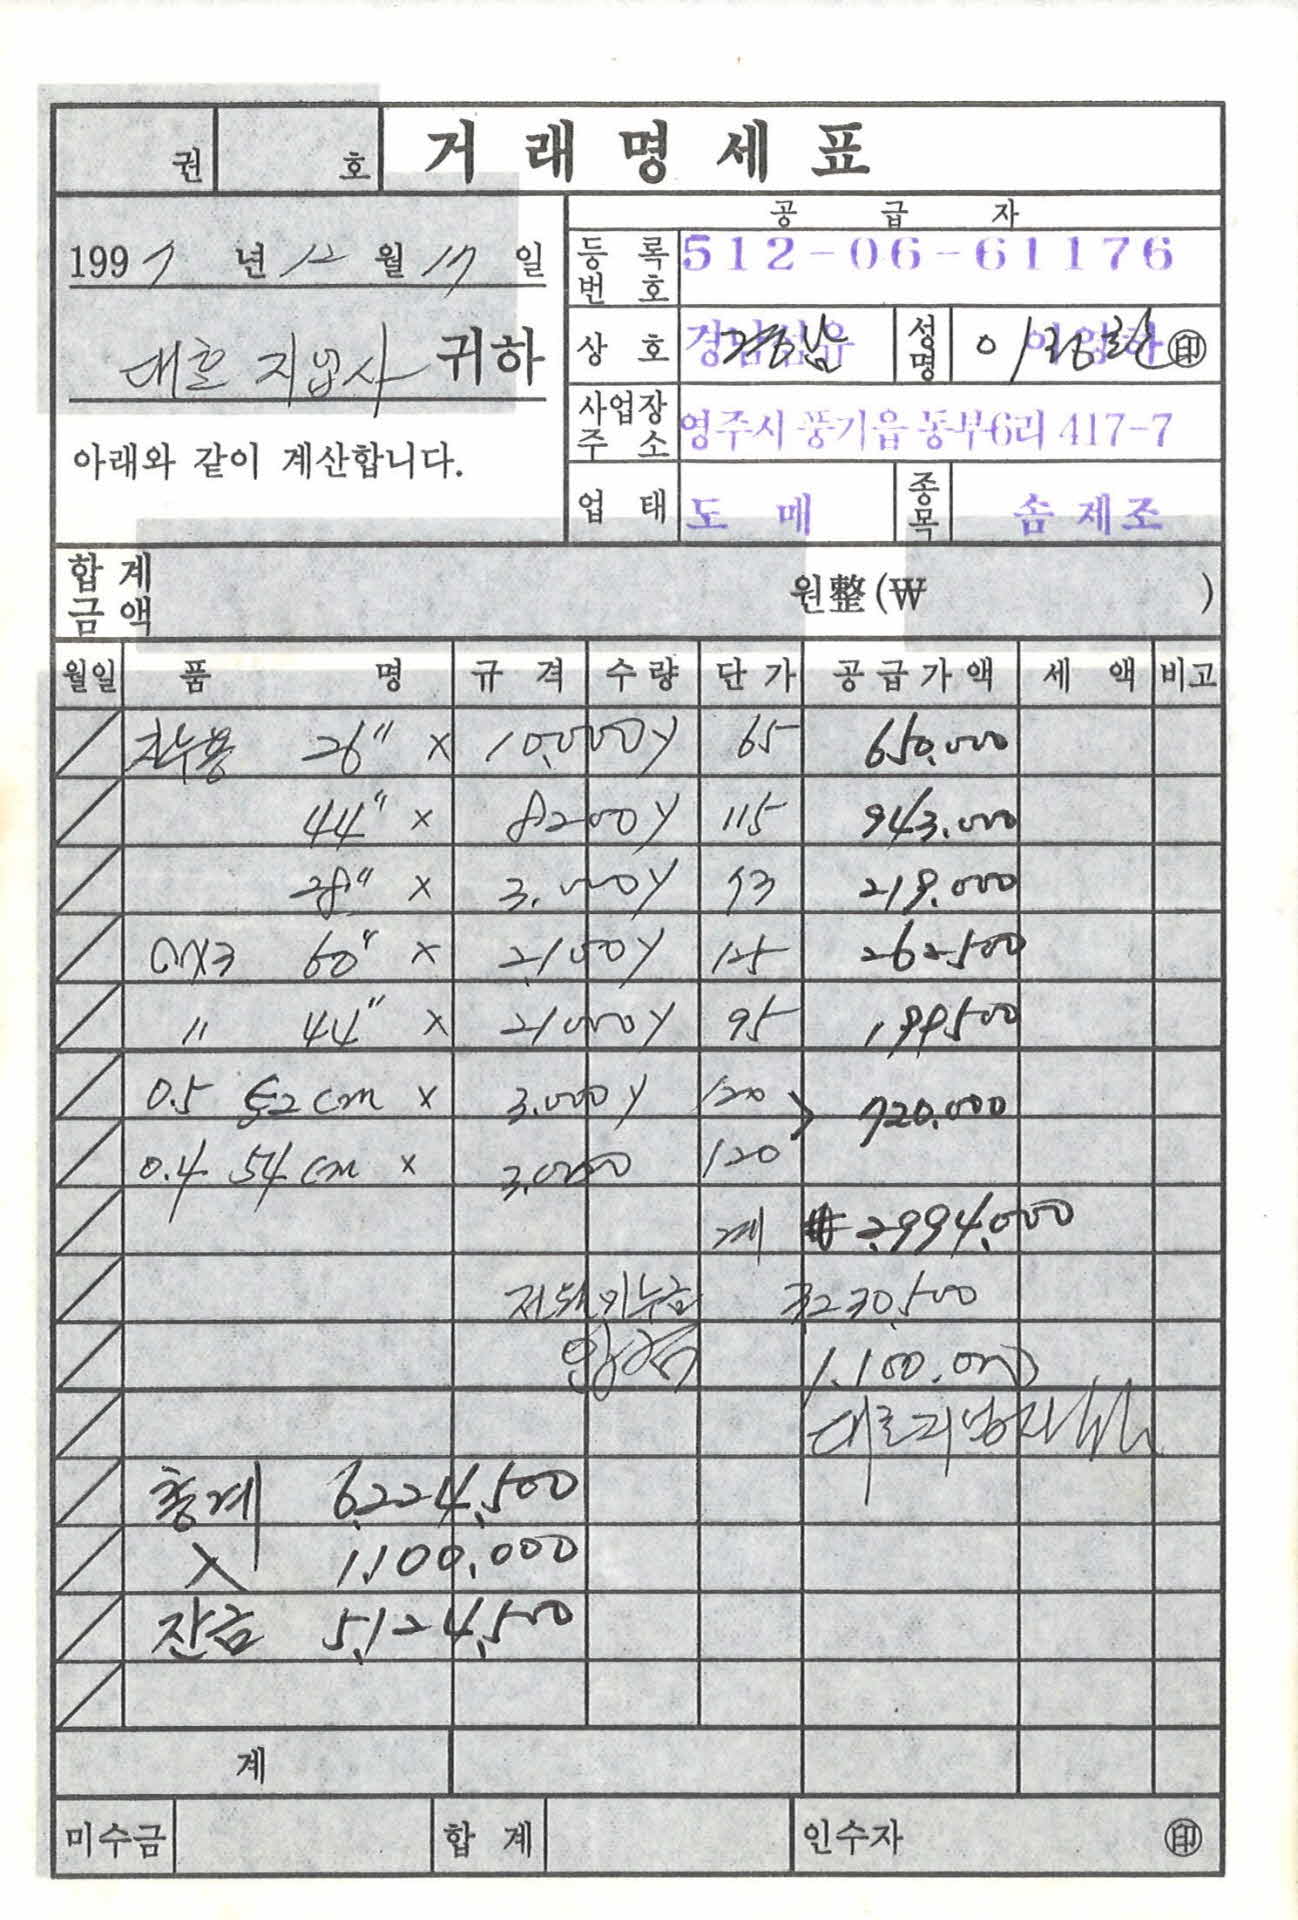 권 호 거래명세표
공급자
1997년 12월 17일
등록번호 512-06-61176
대흔 지업사 귀하
상호 경남 성명 이 ㊞
사업장주소 영주시 풍기읍 동부6리 417-7
아래와 같이 계산합니다.
업태 도매 종목 솜 제조
합계금액 원整(₩ )
월일 품명 규격 수량 단가 공급가액 세액 비고
26" x 10,000y 65 650,000
44" x 8200y 115 943,000
28" x 3,000y 73 219,000
60" x 2,100y 125 262500
" 44" x 2,100y 95 199500
0.5 52cm x 3,000y 120 > 720,000
0.4 54cm x 3,000 120
계 ₩ 2,994,000
전 미수금 3230,500
입금 1,100,000
총계 6,224,500
入 1,100,000
잔금 5,124,500
계
미수금 합계 인수자 ㊞